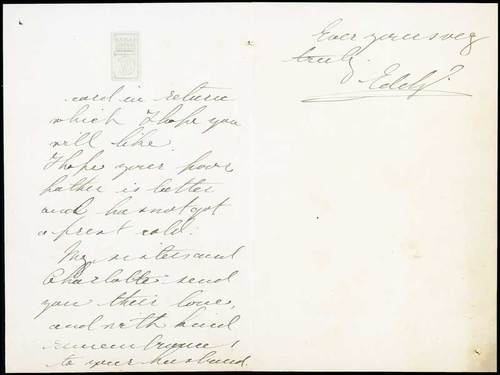 card in return
which I hope you
will like.
I hope your poor
father is better
and has not got
a great cold.
My sisters and
Charlotte send
you their love,
and with kind
remembrances
to your Husband.
Ever yours very
truly
Eddy.